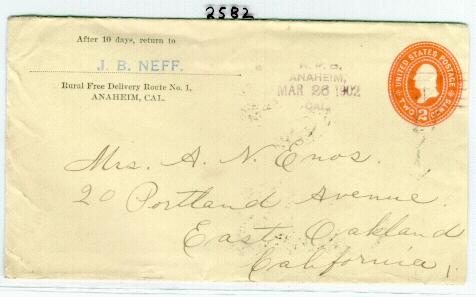 2582
After 10 days, return to
J. B. NEFF.
Rural Free Delivery Route No. 1,
ANAHEIM, CAL.
R. F. D.
ANAHEIM,
MAR 26 1902
CAL.
UNITED STATES POSTAGE
2
TWO CENTS
Mrs. A. N. Enos.
20 Portland Avenue.
East Oakland
California,